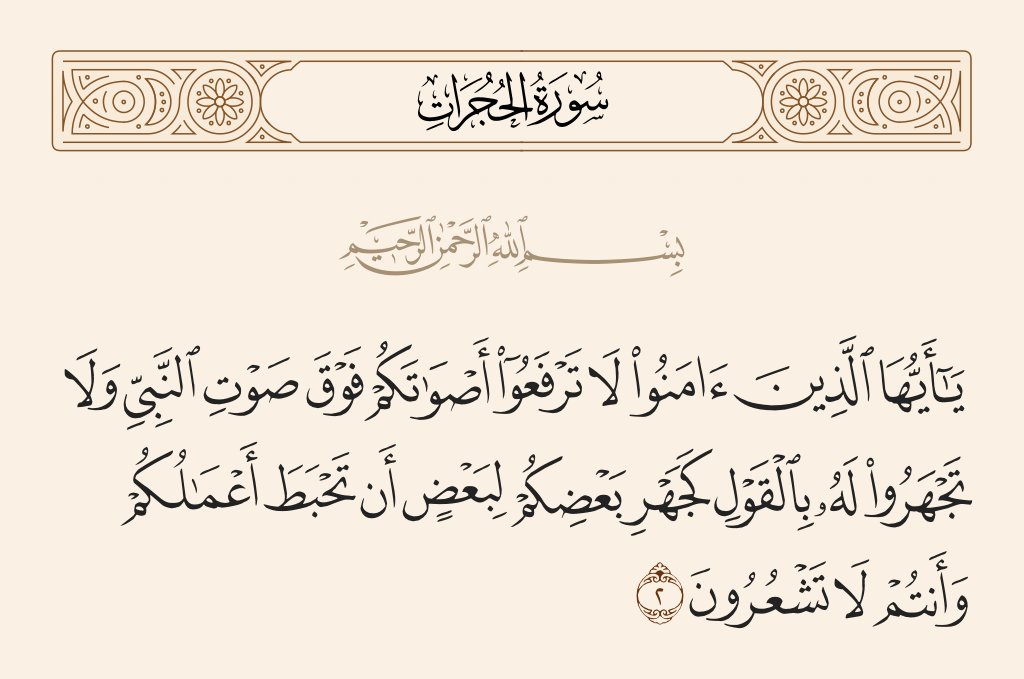 سُورَةُ الحُجُرَاتِ
بِسْمِ ٱللَّهِ ٱلرَّحْمَٰنِ ٱلرَّحِيمِ
يَٰٓأَيُّهَا ٱلَّذِينَ ءَامَنُوا۟ لَا تَرْفَعُوٓا۟ أَصْوَٰتَكُمْ فَوْقَ صَوْتِ ٱلنَّبِىِّ وَلَا
تَجْهَرُوا۟ لَهُۥ بِٱلْقَوْلِ كَجَهْرِ بَعْضِكُمْ لِبَعْضٍ أَن تَحْبَطَ أَعْمَٰلُكُمْ
وَأَنتُمْ لَا تَشْعُرُونَ ٢